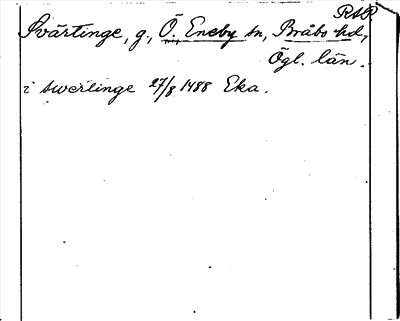 Svärtinge, g., Ö. Eneby sn, Bråbo hd,
Ögl. län.
i swertinge 27/8 1488 Eka.